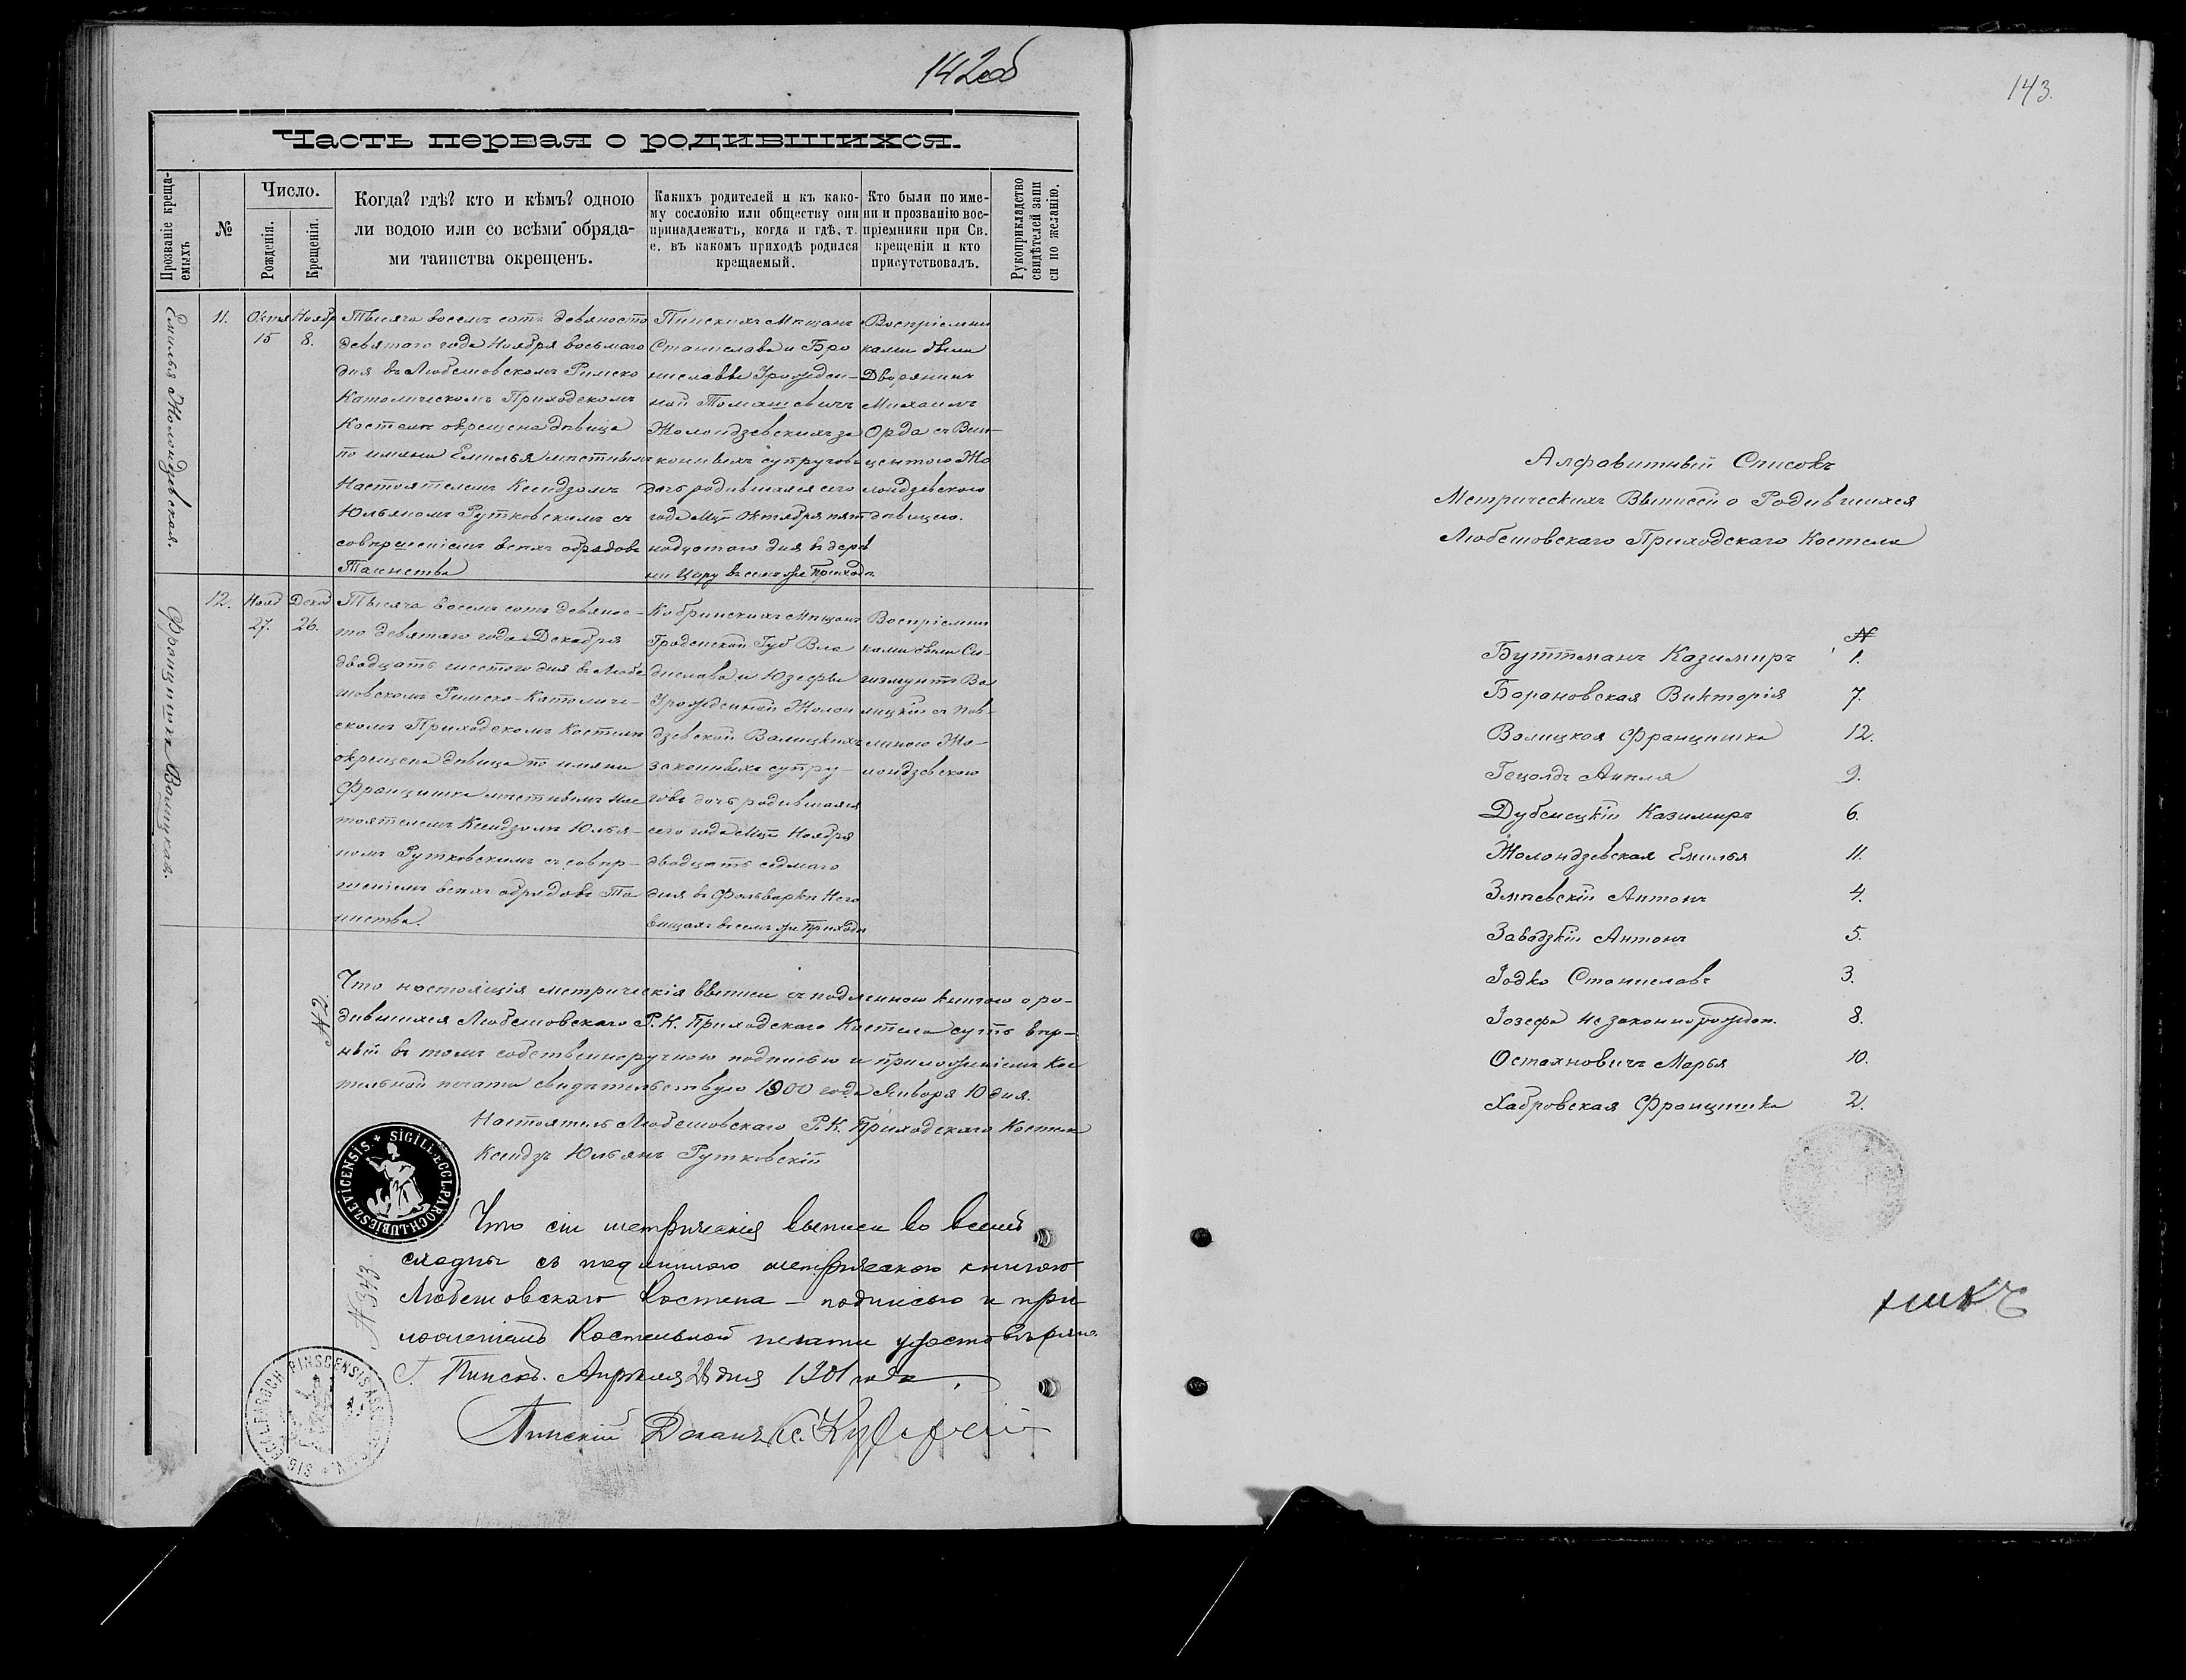 142об
Часть первая о родившихся.
Прозваніе креща-
емыхъ
№
Число.
Рожденія.
Крещенія.
Когда? гдѣ? кто и кѣмъ? одною
ли водою или со всѣми обряда-
ми таинства окрещенъ.
Какихъ родителей и къ како-
му сословію или обществу они
принадлежатъ, когда и гдѣ, т.
е. въ какомъ приходѣ родился
крещаемый.
Кто были по име-
ни и прозванію вос-
пріемники при Св.
крещеніи и кто
присутствовалъ.
Рукоприкладство
свидѣтелей запи
си по желанію.
Емилья Жолондзевская.
11.
Октя
15
Ноябр
8.
Тысяча восемь сотъ девяносто
девятаго года Ноября восьмаго
дня въ Любешовскомъ Римско
Католическомъ Приходскомъ
Костелѣ окрещена дѣвица
по имяни Емилья мѣстнымъ
Настоятелемъ Ксендзомъ
Юльяномъ Рутковскимъ съ
совершеніемъ всехъ обрядовъ
Таинства
Пинскихъ Мѣщанъ
Станислава и Бро
ниславы Урожден-
ной Томашевичъ
Жолондзевскихъ за
конныхъ супруговъ
дочь родившаяся сего
года Мца Октября пят
надцатаго дня въ дерев
ни Циру въ семъ же Приходѣ.
Воспріемни
ками были
Дворянинъ
Михаилъ
Орда съ Вин-
центою Жо
лондзевскою
дѣвицею.
Францишка Валицкая.
12.
Нояб
27.
Декаб
26.
Тысяча восемь сотъ девянос-
то девятаго года Декабря
двадцать шестого дня въ Любе
шовскомъ Римско-Католиче-
скомъ Приходскомъ Костелѣ
окрещена дѣвица по имяни
Францишка мѣстнымъ Нас
тоятелемъ Ксендзомъ Юлья-
номъ Рутковскимъ съ совер-
шеніемъ всехъ обрядовъ Та
инства.
Кобринскихъ Мѣщанъ
Гродненской Губ Вла
дислава и Юзефы
Урожденной Жолон
дзевской Валицкихъ
законныхъ супру-
говъ дочь родившаяся
сего года Мца Ноября
двадцать седмаго
дня въ Фольварке Него
вищахъ въ семъ же Приходѣ
Воспріемни
ками были Си-
гизмунтъ Ва
лицкій съ Пав-
линою Жо-
лондзевскою
Что настоящія метрическія выписи съ подленною книгою о ро-
дившихся Любешовскаго Р. К. Приходскаго Костела суть вѣр-
ный въ томъ собственноручною подписью и приложеніемъ Кос
тельной печати свидѣтельствую 1900 года Января 10 дня.
Настоятель Любешовскаго Р. К. Приходскаго Костела
Ксендзъ Юльянъ Рутковскій
SIGILL.ECCL.PAROCH.LUBIESZEVICENSIS.
Что сіи метрическія выписи во всемъ
сходны съ подлинною метрическою книгою
Любешовскаго Костела - подписью и при
ложеніемъ Костельной печати удостовѣряю.
N 343
Г. Пинскъ. Апрѣля 28 дня 1901 года.
Пинскій Деканъ Кс.
143.
Алфавитный Списокъ
Метрическихъ Выписей о Родившихся
Любешовскаго Приходскаго Костела
N
Буттманъ Казимиръ 1.
Барановская Викторія 7.
Валицкая Францишка 12.
Гецолдъ Анеля 9.
Дубенецкій Казимиръ 6.
Жолондзевская Емилья 11.
Змѣевскій Антонъ 4.
Завадзкій Антонъ 5.
Іодко Станиславъ 3.
Іозефа незаконнорожден. 8.
Остахновичъ Марья 10.
Хабровская Францишка 2.